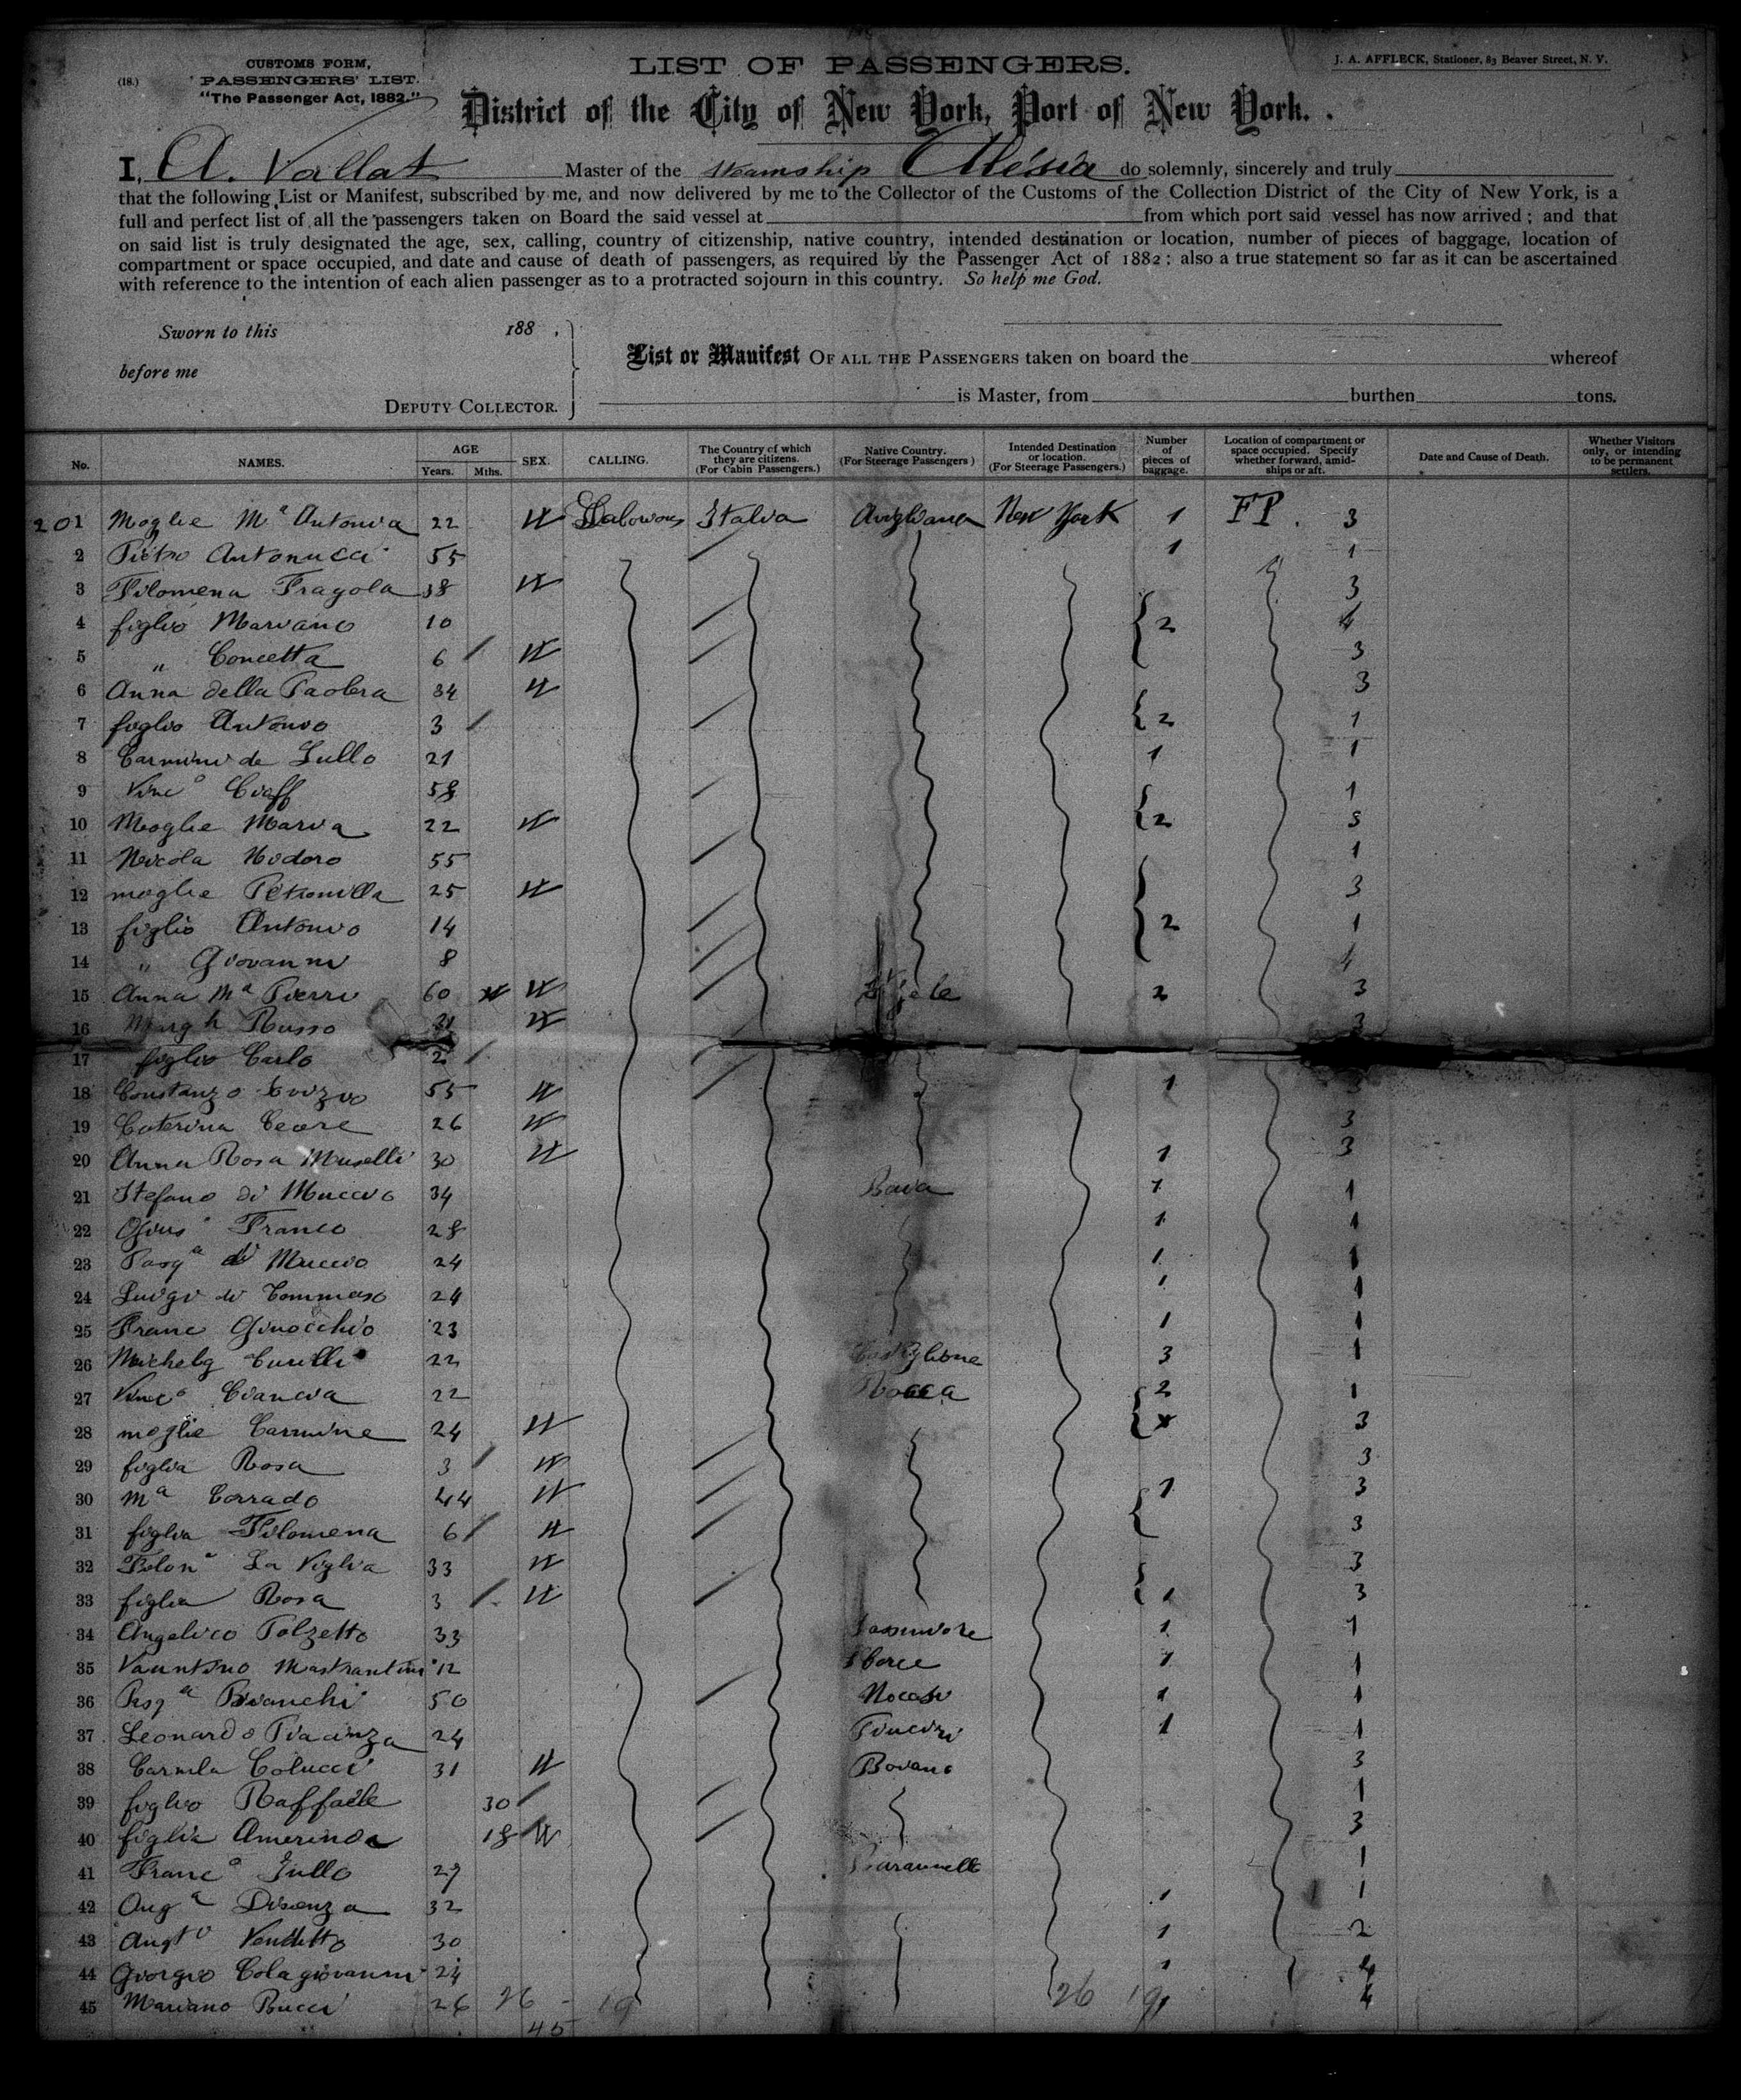 CUSTOMS FORM,
(18.) PASSENGERS' LIST.
"The Passenger Act, 1882."
LIST OF PASSENGERS.
J. A. AFFLECK, Stationer, 83 Beaver Street, N. Y.
District of the City of New York, Port of New York.
I, A. Vallat Master of the steamship Alesia do solemnly, sincerely and truly
that the following List or Manifest, subscribed by me, and now delivered by me to the Collector of the Customs of the Collection District of the City of New York, is a
full and perfect list of all the passengers taken on Board the said vessel at from which port said vessel has now arrived; and that
on said list is truly designated the age, sex, calling, country of citizenship, native country, intended destination or location, number of pieces of baggage, location of
compartment or space occupied, and date and cause of death of passengers, as required by the Passenger Act of 1882; also a true statement so far as it can be ascertained
with reference to the intention of each alien passenger as to a protracted sojourn in this country. So help me God.
Sworn to this 188 .
before me
DEPUTY COLLECTOR.
List or Manifest OF ALL THE PASSENGERS taken on board the whereof
is Master, from burthen tons.
No. NAMES. AGE Years. Mths. SEX. CALLING. The Country of which they are citizens. (For Cabin Passengers.) Native Country. (For Steerage Passengers) Intended Destination or location. (For Steerage Passengers.) Number of pieces of baggage. Location of compartment or space occupied. Specify whether forward, amidships or aft. Date and Cause of Death. Whether Visitors only, or intending to be permanent settlers.
201 Moglie Mª Antonia 22 Italia New York 1 FP. 3
2 Pietro Antonucci 55 1 1
3 Filomena Fragola 38 3
4 figlio Mariano 10 2 4
5 " Concetta 6 3
6 Anna della Paolera 34 3
7 figlio Antonio 3 2 1
8 Carmine de Lullo 21 1 1
9 Vincº Cieff 58 1
10 Moglie Maria 22 2 3
11 Nicola Nodoro 55 1
12 moglie Petronilla 25 3
13 figlio Antonio 14 2 1
14 " Giovanni 8 4
15 Anna Mª Pierri 60 2 3
16 Margh Russo 31 3
17 figlio Carlo 2
18 Constanzo 55 1 3
19 Caterina 26 3
20 Anna Rosa Muselli 30 1 3
21 Stefano di Muccio 34 1 1
22 Gius Franco 28 1 1
23 Pasqª di Muccio 24 1 1
24 Luigi di Tommaso 24 1 1
25 Franc Ginocchio 23 1 1
26 Curelli 22 Castiglione 3 1
27 Vincº Ciancia 22 Rocca 2 1
28 moglie Carmine 24 3
29 figlia Rosa 3 3
30 Mª Corrado 44 1 3
31 figlia Filomena 6 3
32 Filonª La Viglia 33 3
33 figlia Rosa 3 1 3
34 Angelico Polzetto 33 1 1
35 Mastrantuni 12 1 1
36 Pasqª Bianchi 50 1 1
37 Leonardo Piacinza 24 1 1
38 Carmela Colucci 31 Boiano 3
39 figlio Raffaele 30 1
40 figlia Amerinda 18 3
41 Francº Lullo 29 1
42 Angª Disenza 32 1 1
43 Augtº Venditto 30 1 2
44 Giorgio Colagiovanni 24 1 4
45 Mariano Bucci 26 26 - 19 26 19 4
45